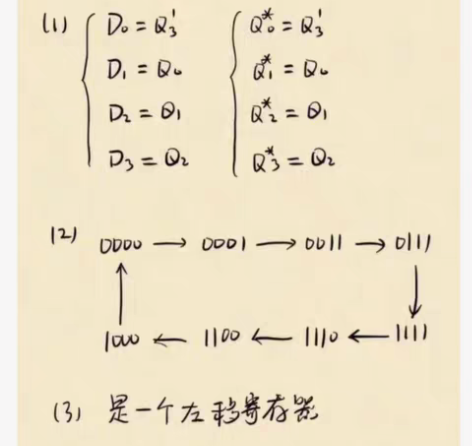 (1) D₀ = Q₃' Q₀* = Q₃'
D₁ = Q₀ Q₁* = Q₀
D₂ = Q₁ Q₂* = Q₁
D₃ = Q₂ Q₃* = Q₂
(2) 0000 → 0001 → 0011 → 0111
↑ ↓
1000 ← 1100 ← 1110 ← 1111
(3) 是一个左移寄存器